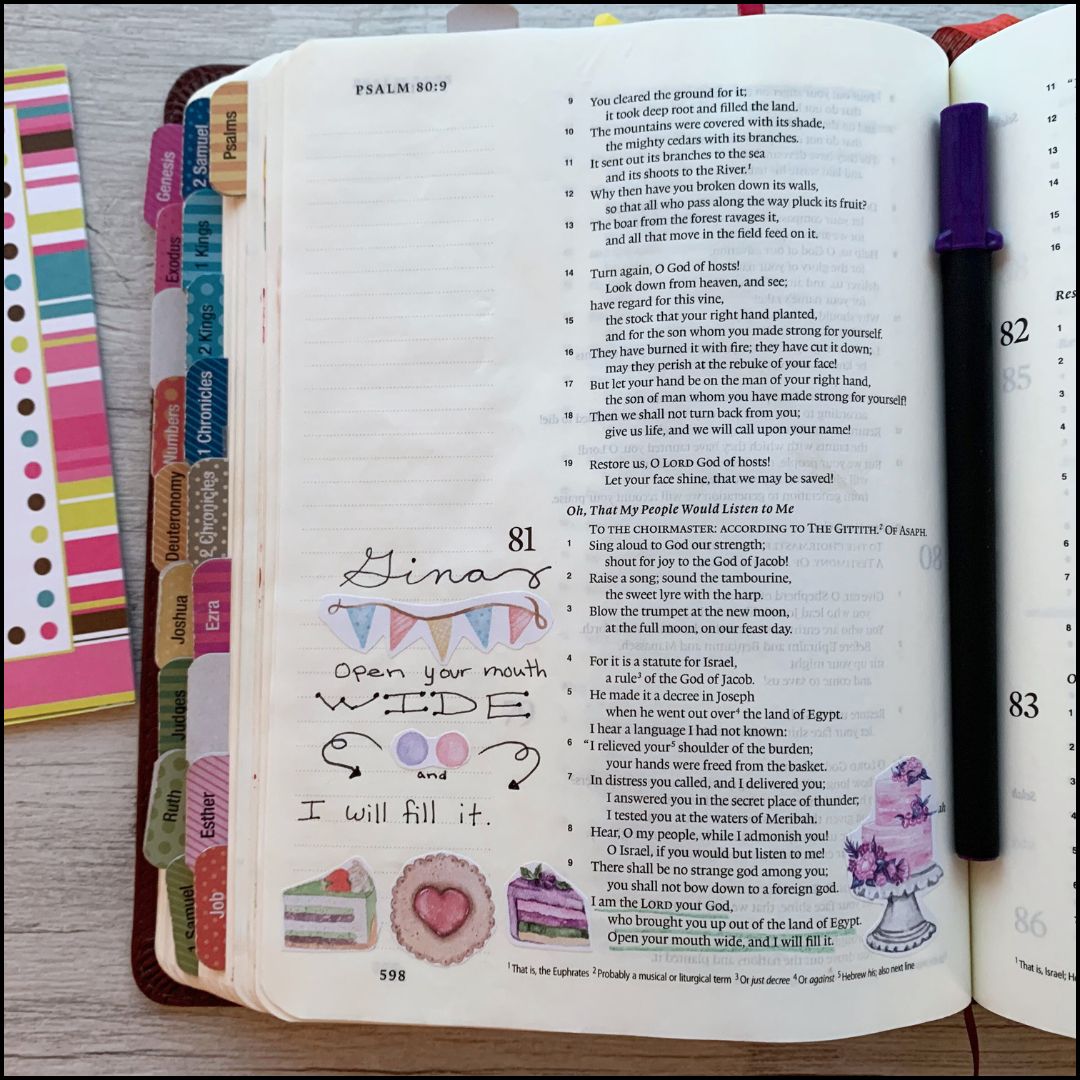 Genesis
Exodus
Numbers
Deuteronomy
Joshua
Judges
Ruth
1 Samuel
2 Samuel
1 Kings
2 Kings
1 Chronicles
2 Chronicles
Ezra
Esther
Job
Psalms
PSALM 80:9
9 You cleared the ground for it;
it took deep root and filled the land.
10 The mountains were covered with its shade,
the mighty cedars with its branches.
11 It sent out its branches to the sea
and its shoots to the River.1
12 Why then have you broken down its walls,
so that all who pass along the way pluck its fruit?
13 The boar from the forest ravages it,
and all that move in the field feed on it.
14 Turn again, O God of hosts!
Look down from heaven, and see;
have regard for this vine,
15 the stock that your right hand planted,
and for the son whom you made strong for yourself.
16 They have burned it with fire; they have cut it down;
may they perish at the rebuke of your face!
17 But let your hand be on the man of your right hand,
the son of man whom you have made strong for yourself!
18 Then we shall not turn back from you;
give us life, and we will call upon your name!
19 Restore us, O LORD God of hosts!
Let your face shine, that we may be saved!
Oh, That My People Would Listen to Me
81 TO THE CHOIRMASTER: ACCORDING TO THE GITTITH.2 OF ASAPH.
1 Sing aloud to God our strength;
shout for joy to the God of Jacob!
2 Raise a song; sound the tambourine,
the sweet lyre with the harp.
3 Blow the trumpet at the new moon,
at the full moon, on our feast day.
4 For it is a statute for Israel,
a rule3 of the God of Jacob.
5 He made it a decree in Joseph
when he went out over4 the land of Egypt.
I hear a language I had not known:
6 "I relieved your5 shoulder of the burden;
your hands were freed from the basket.
7 In distress you called, and I delivered you;
I answered you in the secret place of thunder;
I tested you at the waters of Meribah.
8 Hear, O my people, while I admonish you!
O Israel, if you would but listen to me!
9 There shall be no strange god among you;
you shall not bow down to a foreign god.
I am the LORD your God,
who brought you up out of the land of Egypt.
Open your mouth wide, and I will fill it.
Gina
Open your mouth
WIDE
and
I will fill it.
598
1 That is, the Euphrates 2 Probably a musical or liturgical term 3 Or just decree 4 Or against 5 Hebrew his; also next line
11
12
13
14
15
16
Res
82
1
2
3
4
5
6
7
8
83
1
2
3
4
1 That is, Israel;